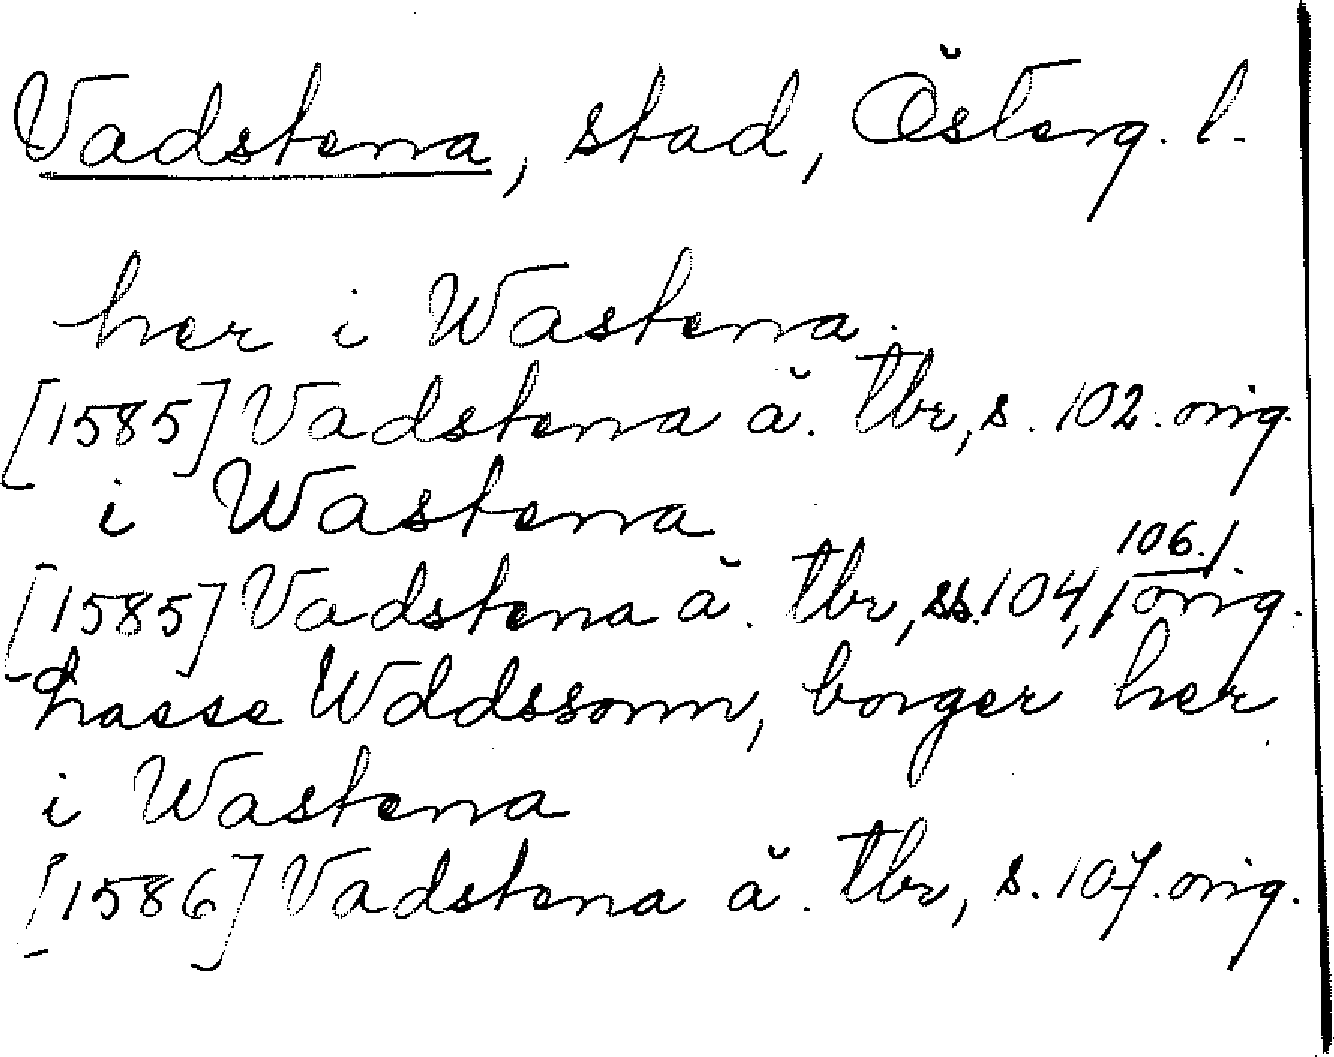 Vadstena, stad, Österg. l.
her i Wastena.
[1585] Vadstena ä. tbr, s. 102. orig.
i Wastena
[1585] Vadstena ä. tbr, ss. 104, 106. orig.
Lasse Wddssonn, borger her
i Wastena
[1586] Vadstena ä. tbr, s. 107. orig.